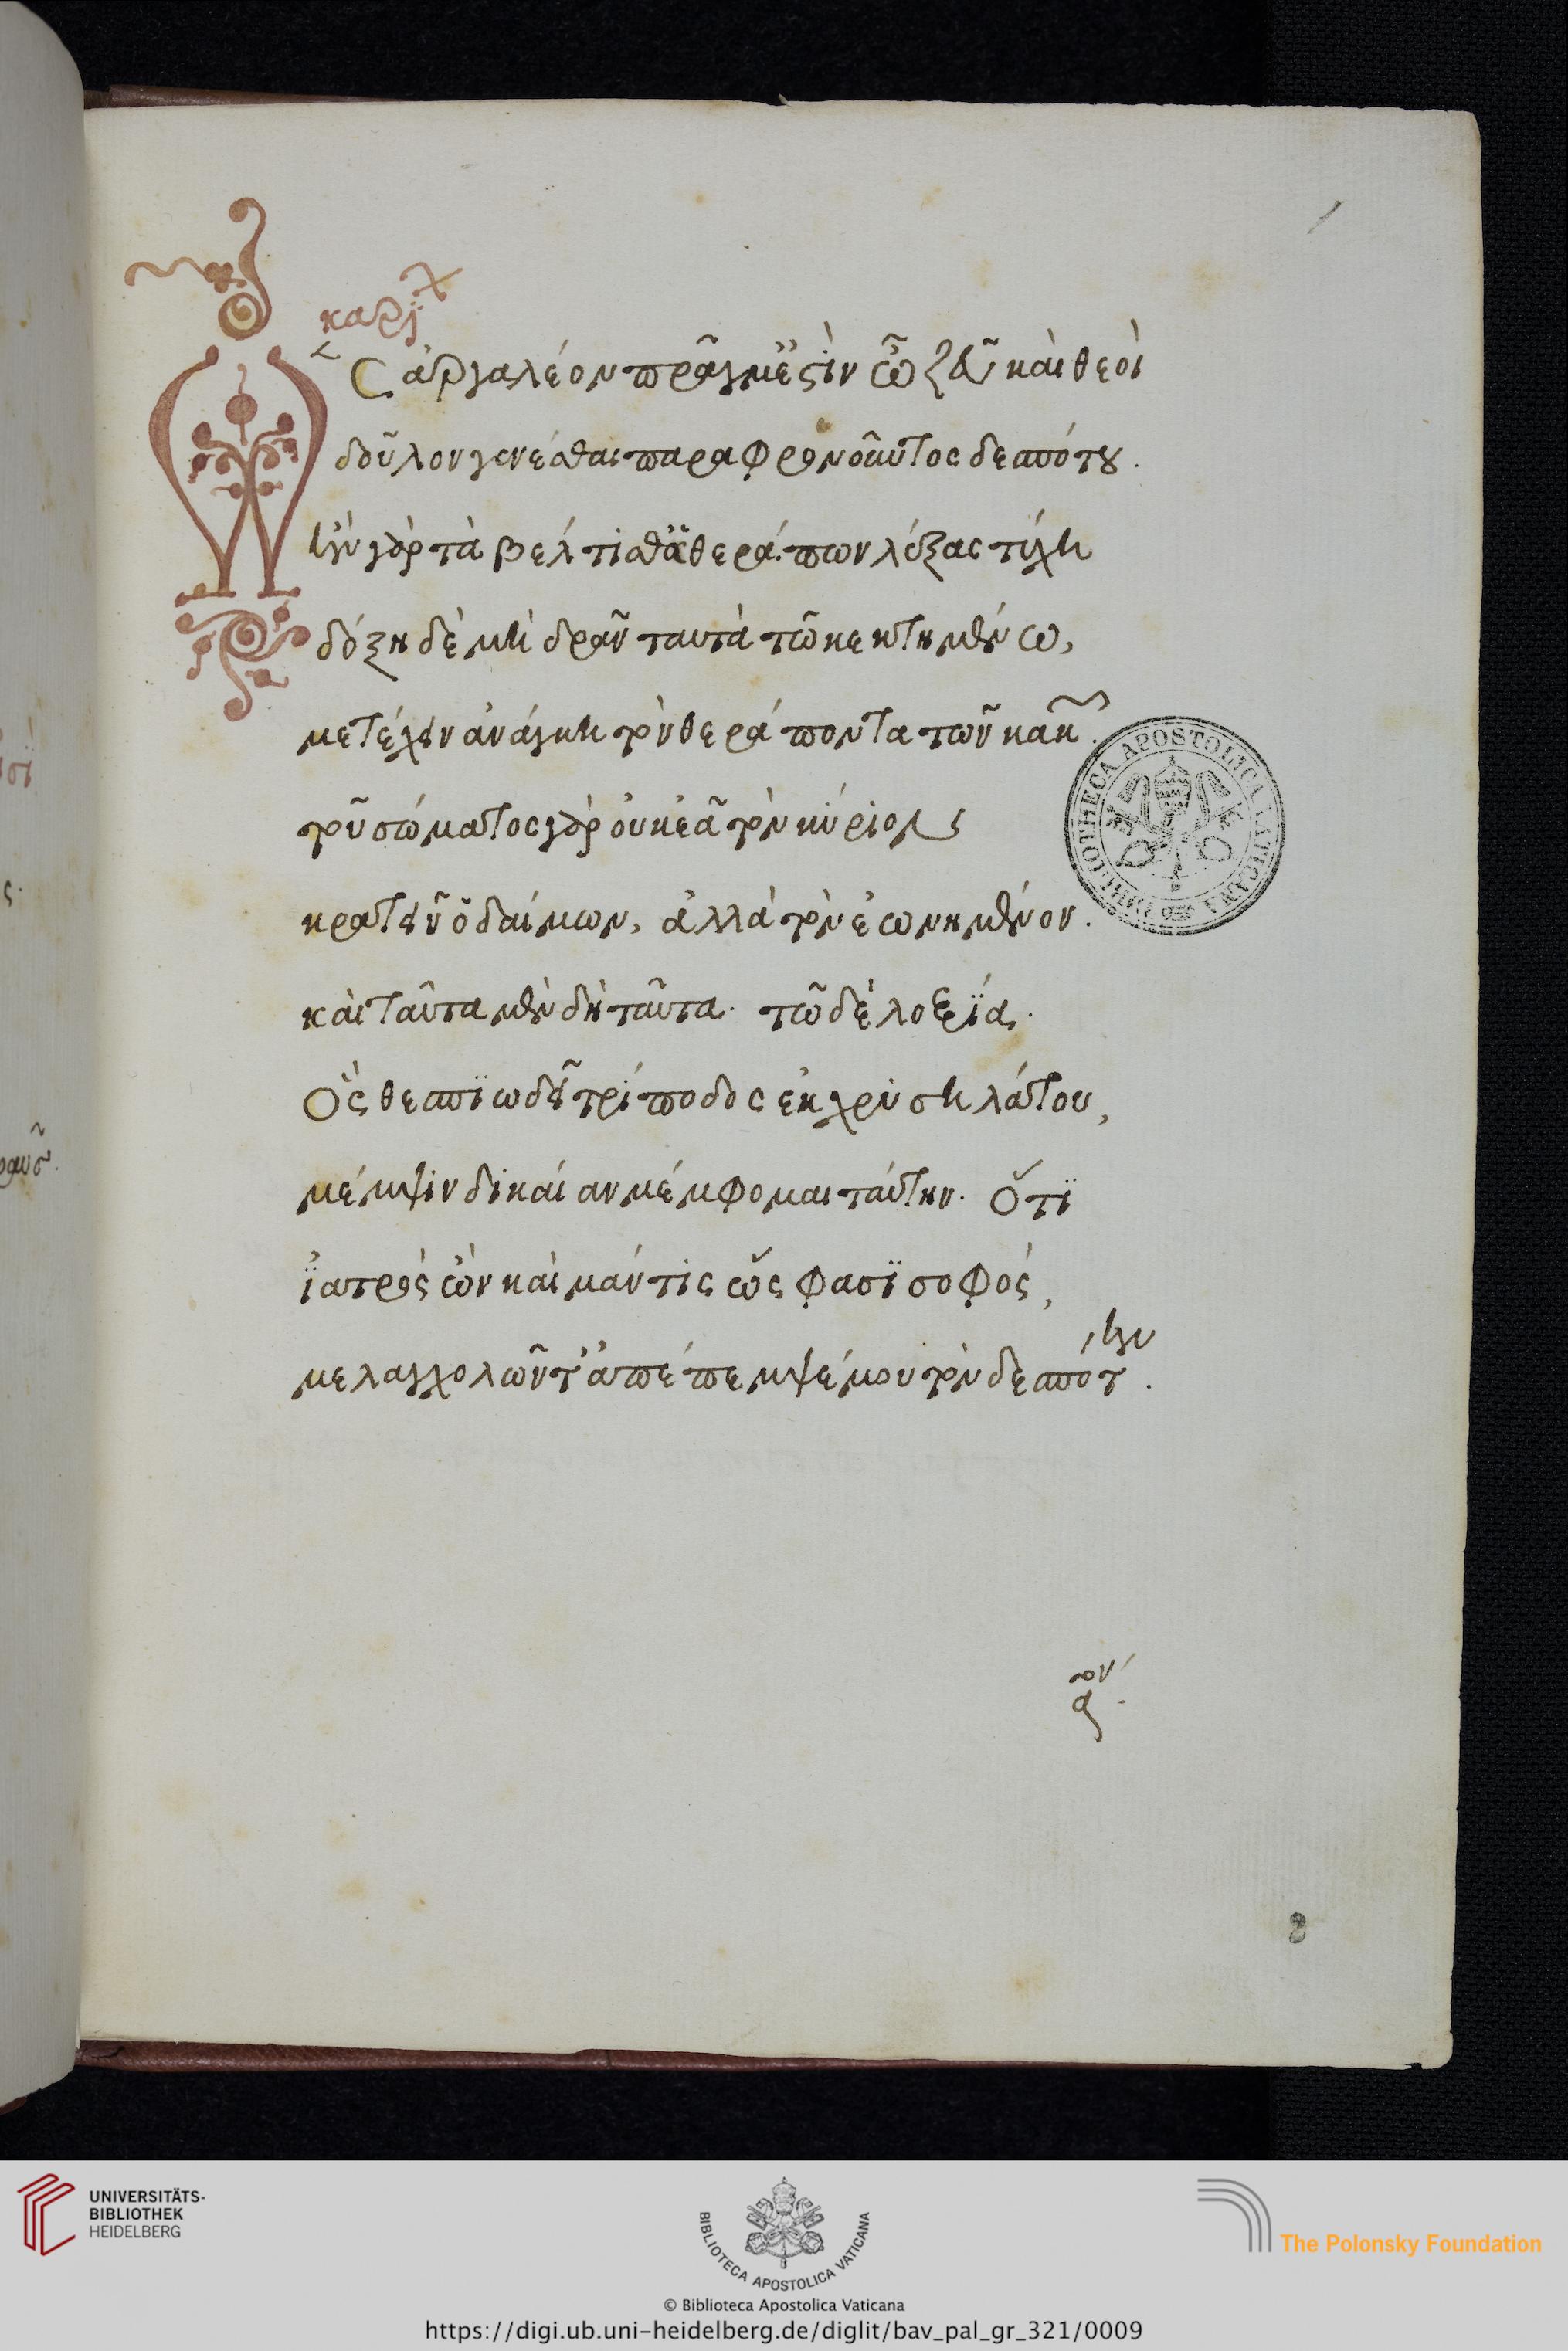 1
καρίχ
Ὡς ἀργαλέον πρᾶγμ' ἐστὶν ὦ ζεῦ καὶ θεοὶ
δοῦλον γενέσθαι παραφρονοῦντος δεσπότου.
ἢν γὰρ τὰ βέλτισθ' ὁ θεράπων λέξας τύχη
δόξη δὲ μὴ δρᾶν ταυτὰ τῶ κεκτημένω,
μετέχειν ἀνάγκη τὸν θεράποντα τῶν κακῶν.
τοῦ σώματος γὰρ οὐκ ἐᾶ τὸν κύριον
κρατεῖν ὁ δαίμων, ἀλλὰ τὸν ἐωνημένον.
καὶ ταῦτα μὲν δὴ ταῦτα. τῶ δὲ λοξία.
Ὃς θεσπιωδεῖ τρίποδος ἐκ χρυσηλάτου,
μέμψιν δικαίαν μέμφομαι ταύτην. Ὅτι
ἰατρὸς ὢν καὶ μάντις ὥς φασι σοφός,
μελαγχολῶντ' ἀπέπεμψέ μου τὸν δεσπότην.
αον
8
BIBLIOTHECA APOSTOLICA VATICANA
UNIVERSITÄTS-
BIBLIOTHEK
HEIDELBERG
BIBLIOTECA APOSTOLICA VATICANA
The Polonsky Foundation
© Biblioteca Apostolica Vaticana
https://digi.ub.uni-heidelberg.de/diglit/bav_pal_gr_321/0009